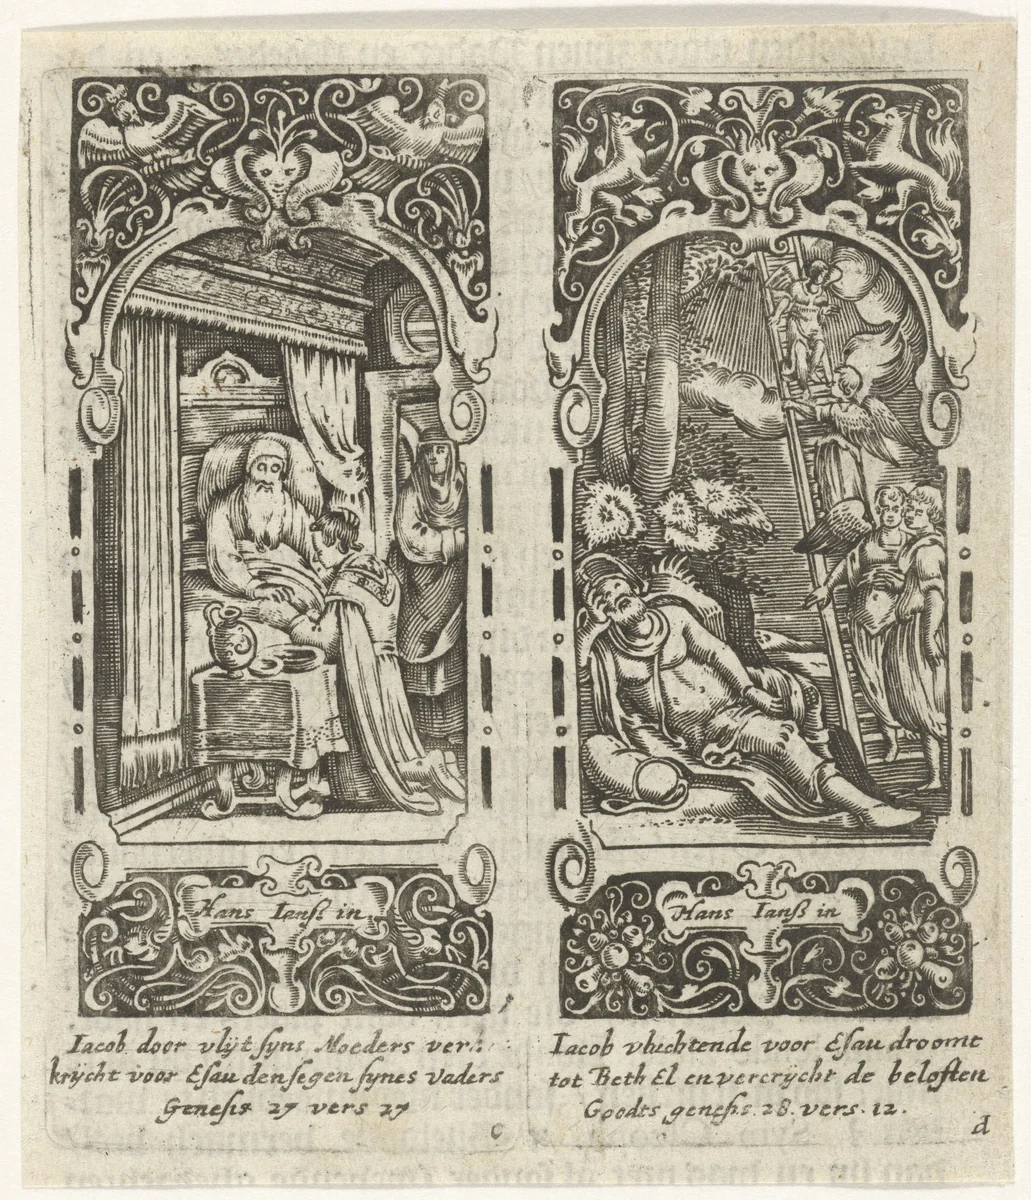 Hans Ianss in
Iacob door vlyt syns Moeders ver
krycht voor Esau den segen synes vaders
Genesis 27 vers 27
c
Hans Ianß in
Iacob vluchtende voor Esau droomt
tot Beth El en vercrycht de beloften
Goodts genesis. 28. vers. 12.
d